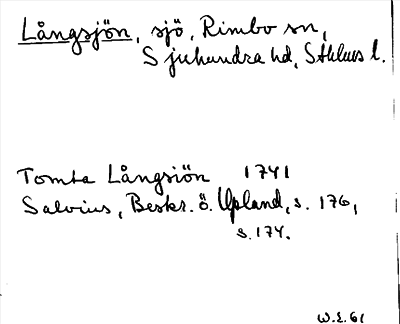 Långsjön, sjö, Rimbo sn,
Sjuhundra hd, Sthlms l.
Tomta Långsiön 1741
Salvius, Beskr. ö. Upland, s. 176,
s. 174.
W.E. 61